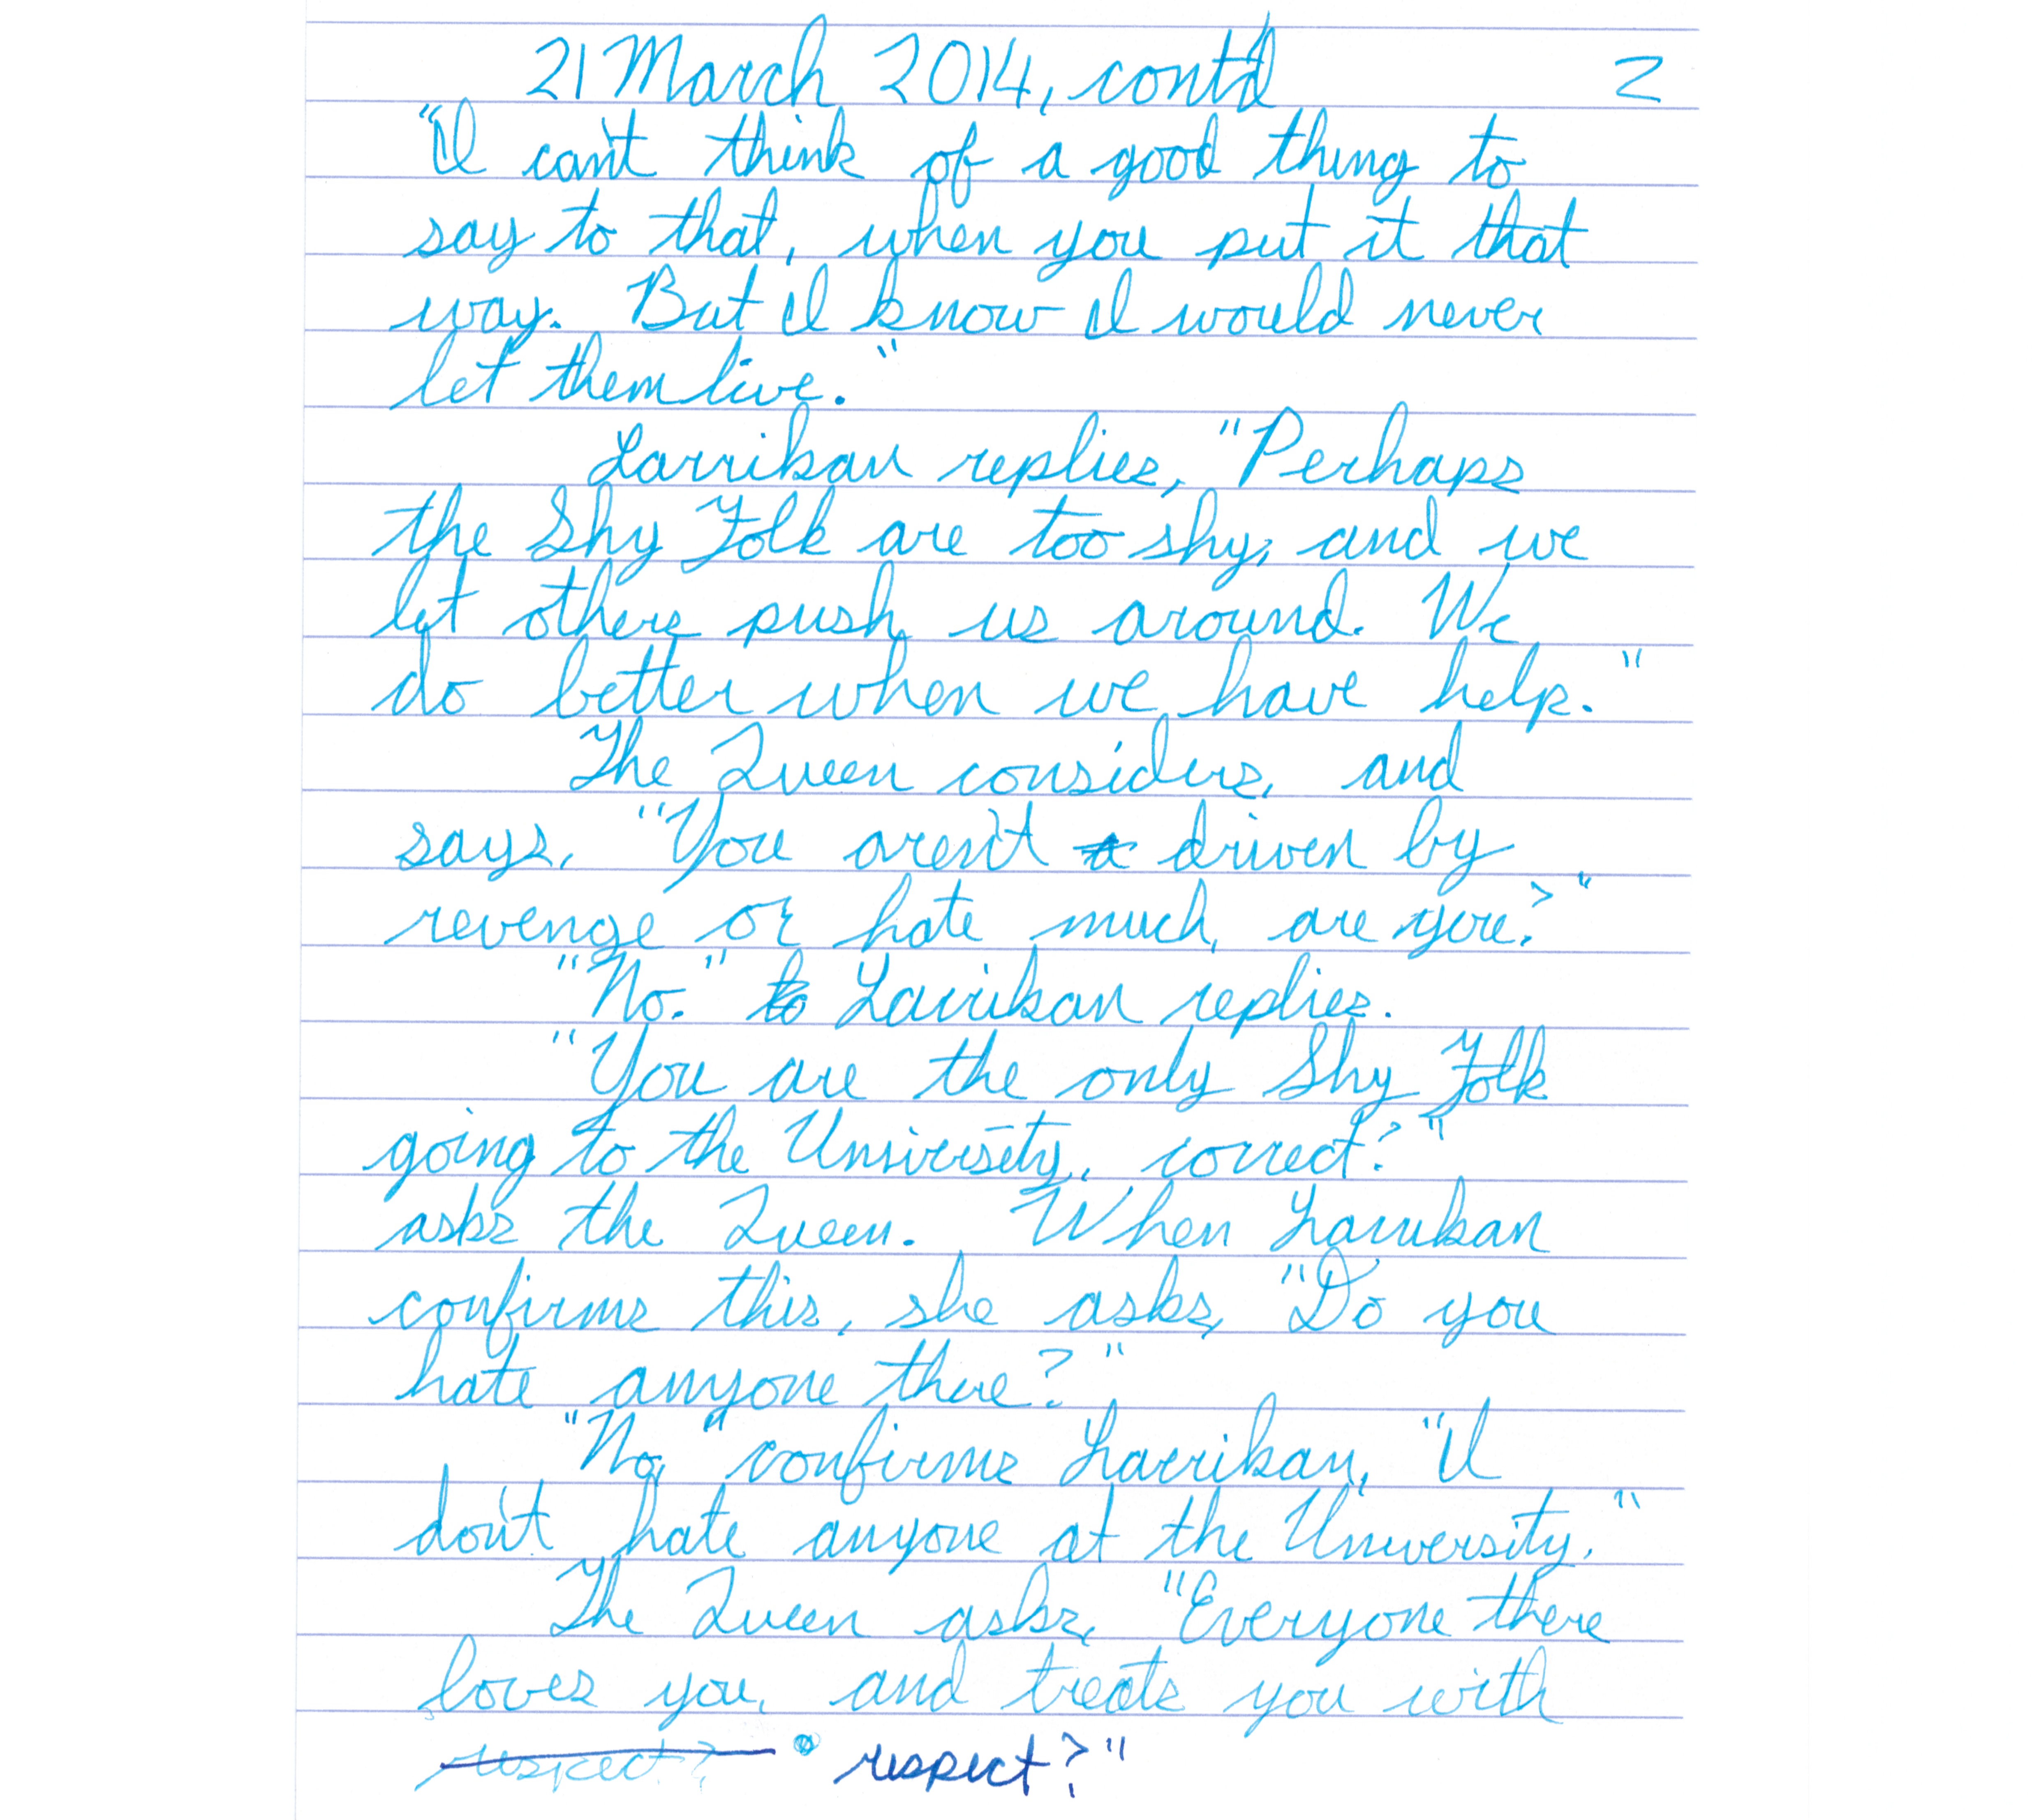 21 March 2014, cont'd 2
"I can't think of a good thing to
say to that, when you put it that
way. But I know I would never
let them live."
Larrikan replies, "Perhaps
the Shy Folk are too shy, and we
let others push us around. We
do better when we have help."
The Queen considers, and
says, "You aren't a driven by
revenge or hate much, are you?"
"No." to Larrikan replies.
"You are the only Shy Folk
going to the University, correct?"
asks the Queen. When Larrikan
confirms this, she asks, "Do you
hate anyone there?"
"No," confirms Larrikan, "I
don't hate anyone at the University."
The Queen asks, "Everyone there
loves you, and treats you with
respect? respect?"